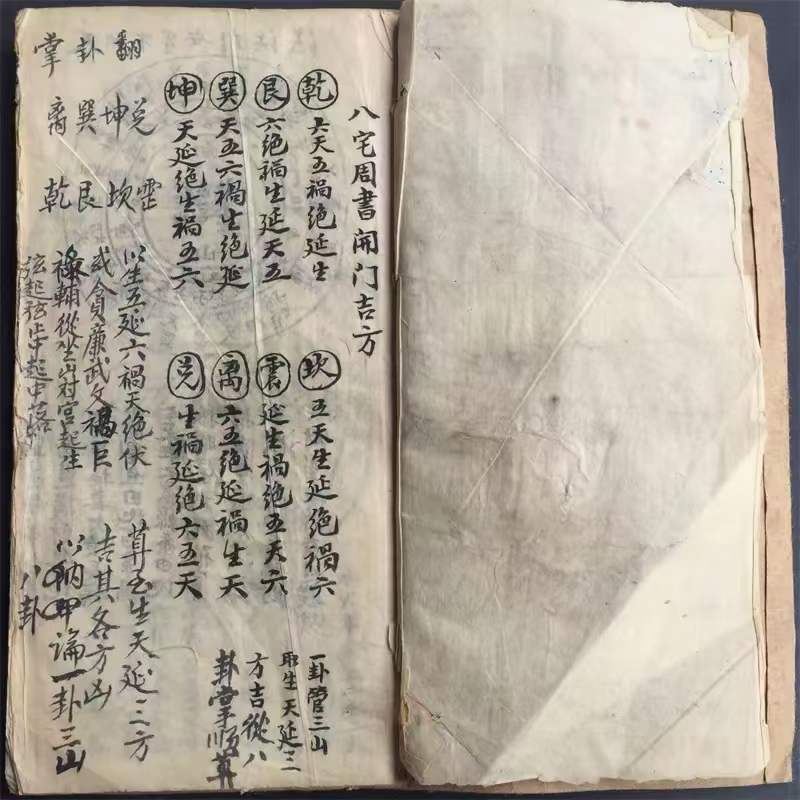 八宅周書開门吉方
乾 六天五禍絶延生
艮 六絶禍生延天五
巽 天五六禍生絶延
坤 天延絶生禍五六
坎 五天生延絶禍六
震 延生禍絶五天六
离 六五絶延禍生天
兑 生禍延絶六五天
一卦管三山
取生天延三
方吉從八
卦掌順算
翻卦掌
兑坤巽离
震坎艮乾
以生五延六禍天绝伏
貪廉武文禄巨
輔從坐山对宫起生
弦起弦止中起中落
算至生天延三方
吉其各方凶
以纳甲論一卦三山
八卦